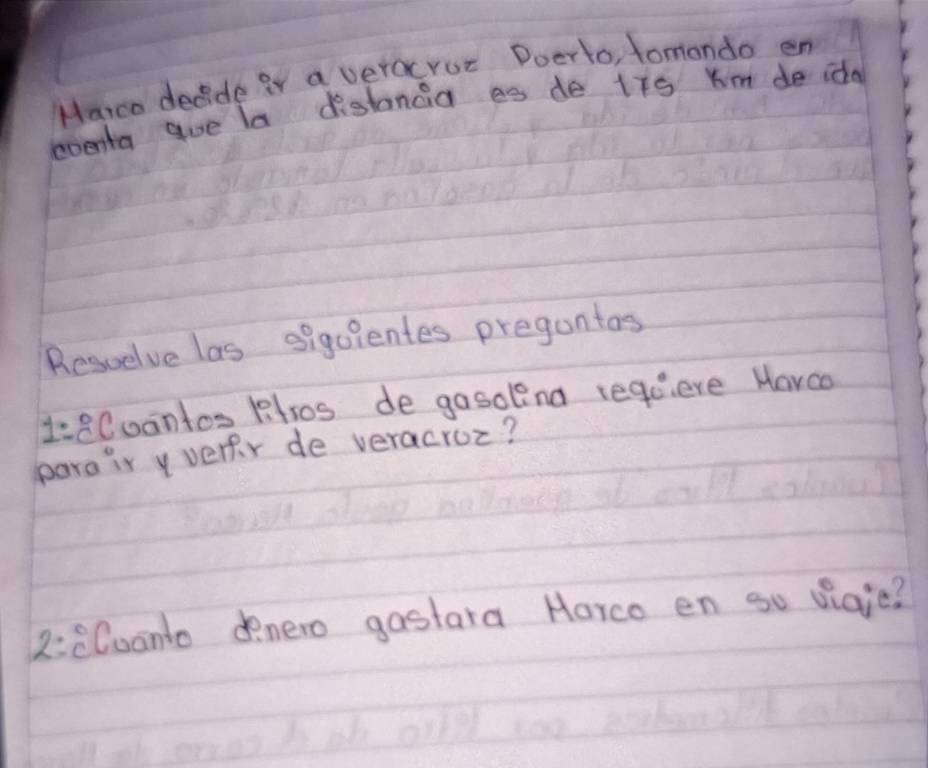 Marco decide ir a veracruz Puerto, tomando en
cuenta que la distancia es de 175 Km de ida
Resuelve las siguientes preguntas
1: ¿Cuantos litros de gasolina requiere Marco
para ir y venir de veracruz?
2: ¿Cuanto dinero gastara Marco en su viaje?